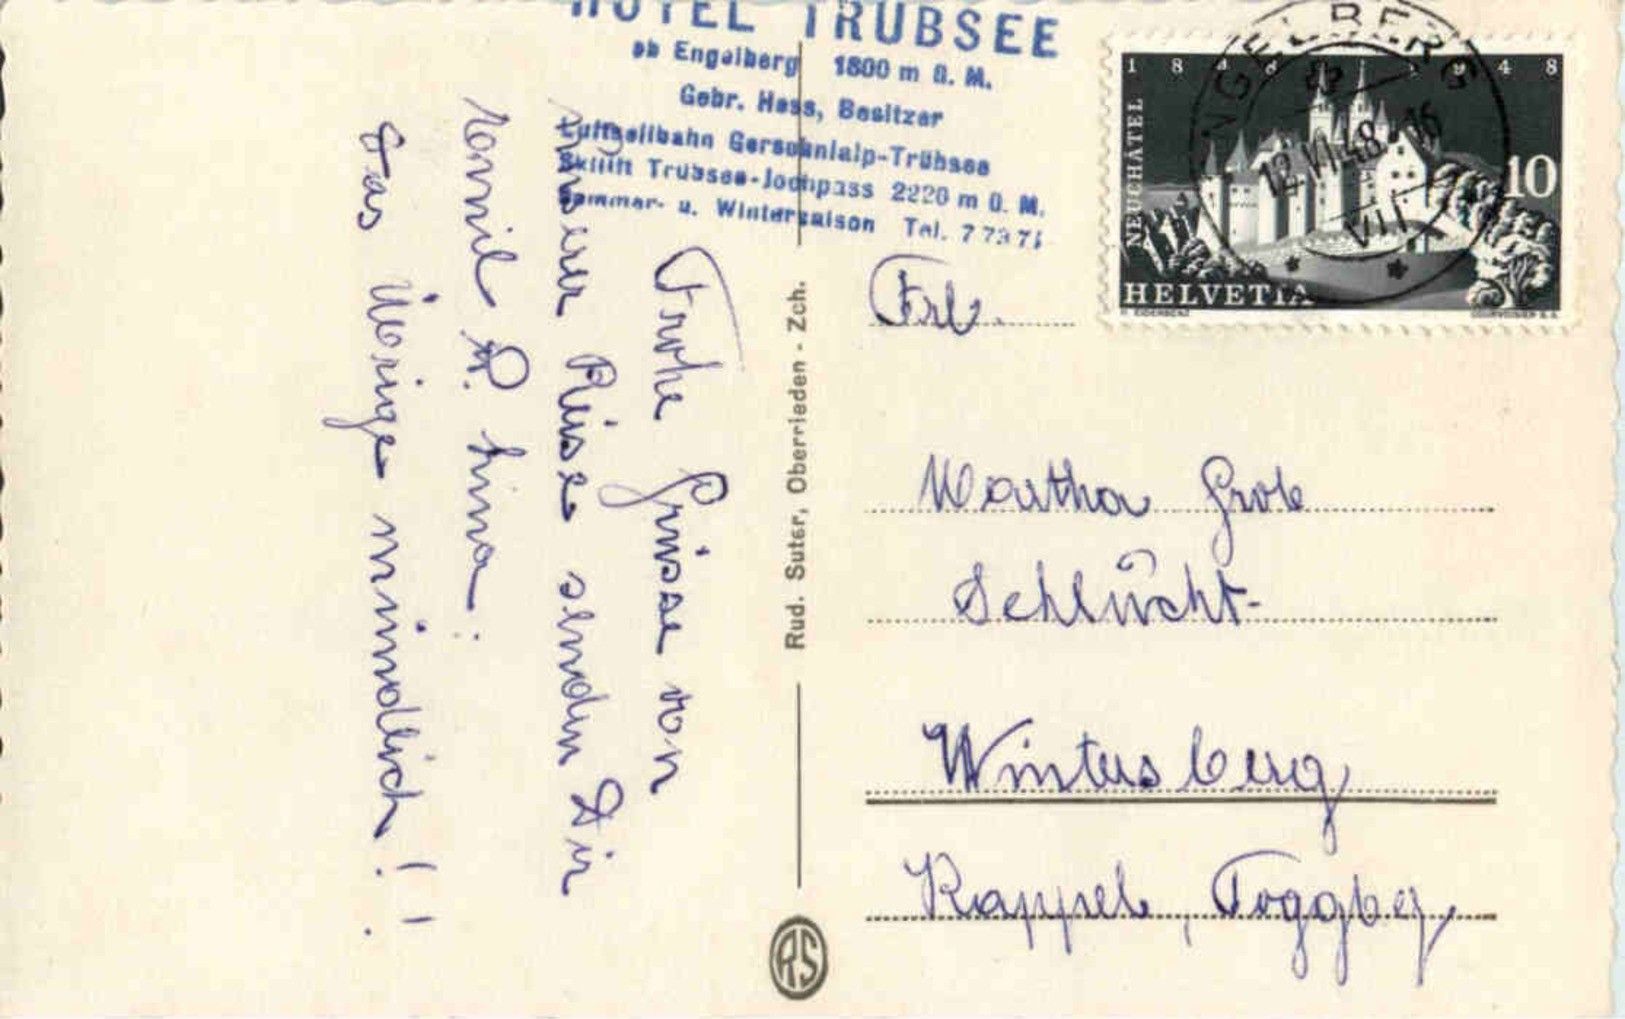 HOTEL TRÜBSEE
ob Engelberg 1800 m ü. M.
Gebr. Hess, Besitzer
Luftseilbahn Gerschnialp-Trübsee
Skilift Trübsee-Jochpass 2220 m ü. M.
Sommer- u. Wintersaison Tel. 7 73 71
Frohe Grüsse von
unserer Reise senden Dir
Emil & Lina.
das Übrige mündlich!!
Rud. Suter, Oberrieden - Zch.
RS
1848 1948
NEUCHÂTEL
10
HELVETIA
ENGELBERG
12.VI.48.-16
VII
Frl.
Martha Grob
Schlucht-
Wintersberg
Kappel, Toggbg.